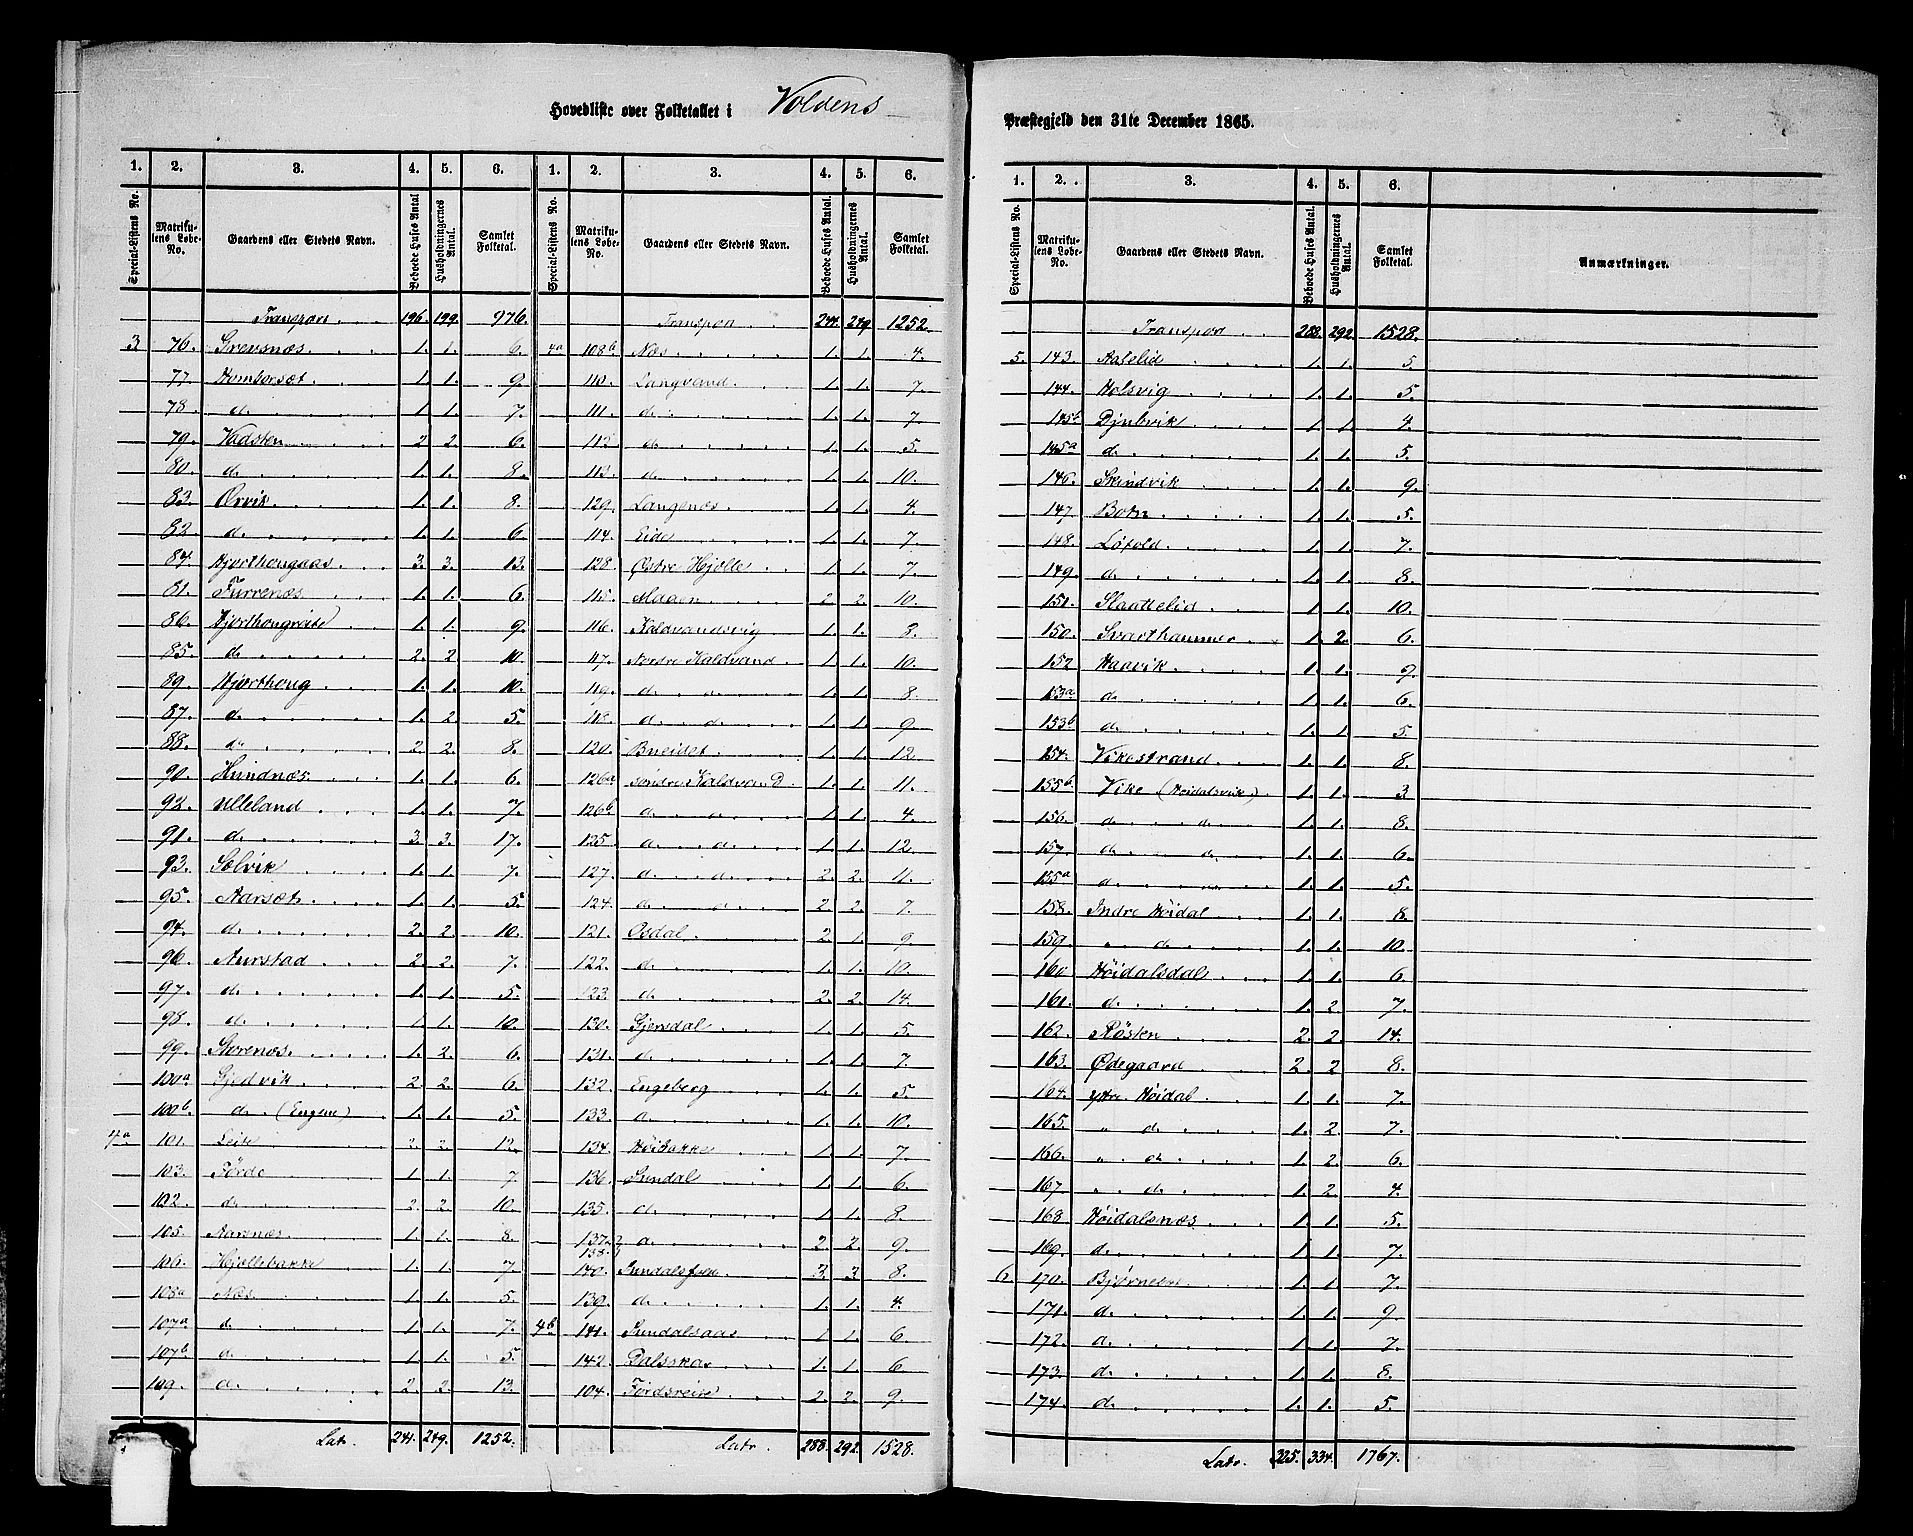 Hovedliste over Folketallet i Voldens
Præstegjeld den 31te December 1865.
1. 2. 3. 4. 5. 6. 1. 2. 3. 4. 5. 6.
Special-Listens No. Matrikulens Løbe-No. Gaardens eller Stedets Navn. Beboede Huses Antal Husholdningernes Antal. Samlet Folketal. Special-Listens No. Matrikulens Løbe-No. Gaardens eller Stedets Navn. Beboede Huses Antal. Husholdningernes Antal. Samlet Folketal.
Transport 196. 199. 976.
3 76. Grevsnæs. 1. 1. 6.
77. Homborset. 1. 1. 9.
78. d. 1. 1. 7.
79. Vadsten 2. 2. 6.
80. d. 1. 1. 8.
83. Ørvik. 1. 1. 8.
82. d. 1. 1. 6.
84. Hjorthougaas 3. 3. 13.
81. Furrenæs 1. 1. 6.
86. Hjorthougreite 1. 1. 9.
85. d. 2. 2. 10.
89. Hjorthoug 1. 1. 10.
87. d. 1. 2. 5.
88. d. 2. 2. 8.
90. Hundnæs. 1. 1. 6.
92. Ulleland 1. 1. 7.
91. d. 3. 3. 17.
93. Sølvik 1. 1. 7.
95. Aarset 1. 1. 5.
94. d. 2. 2. 10.
96. Aurstad 2. 2. 7.
97. d. 1. 1. 5.
98. d. 1. 1. 10.
99. Storenæs. 1. 2. 6.
100a Gjedvik 2. 2. 6.
100b d. (Engene) 1. 1. 5.
4a 101. Leite 2. 2. 12.
103. Førde 1. 1. 7.
102. d. 2. 2. 10.
105. Aarenæs 1. 1. 8.
106. Hjellebakke 1. 1. 7.
108a Næs 1. 1. 5.
107a d. 1. 1. 7.
107b d. 1. 1. 5.
109. d. 2. 3. 13.
Lat. 241. 249. 1252.
Transport 241 249 1252.
4a 108b Næs 1. 1. 4.
110. Langvand 1. 1. 7.
111. d. 1. 1. 7.
112. d. 1. 1. 5.
113. d. 1. 1. 10.
129. Langenæs. 1. 1. 4.
114. Eide 1. 1. 7.
128. Østre Hjelle 1. 1. 7.
115. Magen 2. 2. 10.
116. Kaldvandsvig 1. 1. 8.
117. Nordre Kaldvand 1. 1. 10.
119. d. d. 1. 1. 8.
118. d. d. 1. 1. 9.
120. Bneidet 1. 1. 12.
126a søndre Kaldvand 1. 1. 11.
126b d. d. 1. 1. 4.
125. d. d. 1. 1. 12.
127. d. d. 2. 2. 11.
124. d. d. 2. 2. 7.
121. Osdal 2. 1. 9.
122. d. 1. 1. 10.
123. d. 2. 2. 14.
130. Gjersdal 1. 1. 5.
131. d. 1. 1. 7.
132. Engeberg 1. 1. 5.
133. d. 1. 1. 10.
134. Høibakke 1. 1. 7.
136. Sundal 1. 1. 6.
135. d. 1. 1. 8.
137. 138. d. 2. 2. 9.
140. 3. 3. 8.
139. d. 1. 1. 4.
4b 141. Sundalsaas 1. 1. 6.
142. Dalsskar 1. 1. 6.
104. Førdsreite 2. 2. 9.
Latr. 288. 292. 1528.
1. 2. 3. 4. 5. 6.
Special-Listens No. Matrikulens Løbe-No. Gaardens eller Stedets Navn. Beboede Huses Antal. Husholdningernes Antal. Samlet Folketal. Anmærkninger.
Transport 288. 292. 1528.
5. 143. Aaselid 1. 1. 5.
144. Holsvig 1. 1. 5.
145b Djubvik 1. 1. 4.
145a d. 1. 1. 5.
146. Skindvik 1. 1. 9.
147. Botn 1. 1. 5.
148. Løfold 1. 1. 7.
149. d. 1. 1. 8.
151. Slaattelid 1. 1. 10.
150. Svarthammer 1. 2. 6.
152 Haavik 1. 1. 9.
153a d. 1. 1. 6.
153b d. 1. 1. 5.
154. Vikestrand 1. 1. 8.
155b Vike (Høidalsvik) 1. 1. 3
156. d. d. 1. 1. 8.
157. d. d. 1. 1. 6.
155a d. d. 1. 1. 5.
158. Indre Høidal 1. 1. 8.
159. " d. 1. 1. 10.
160 Høidalsdal 1. 1. 6.
161. d. 1. 2. 7.
162. Røsten 2. 2. 14.
163. Ødegaard 2. 2 8.
164. ytre Høidal 1. 1. 7.
165. " d. 1. 2. 7.
166. " d. 1. 2. 6.
167. " d. 1. 2. 4.
168 Høidalsnæs 1. 1. 5.
169. d. 1. 1. 7.
6. 170. Bjørneset 1. 1. 7.
171. d. 1. 1. 9.
172. d. 1. 1. 7.
173. d. 1. 1. 8.
174. d. 1. 1. 5.
Latr. 325. 334. 1767.